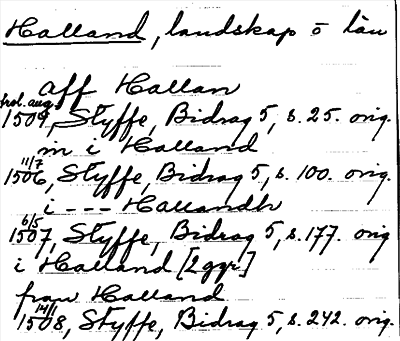 Halland, landskap o län
aff Hallan
hol. aug.
1509, Styffe, Bidrag 5, s. 25. orig.
m i Halland
11/7
1506, Styffe, Bidrag 5, s. 100. orig.
i --- Hallandh
6/5
1507, Styffe, Bidrag 5, s. 177. orig
i Halland [2 ggr]
fraw Halland
14/1
1508, Styffe, Bidrag 5, s. 242. orig.